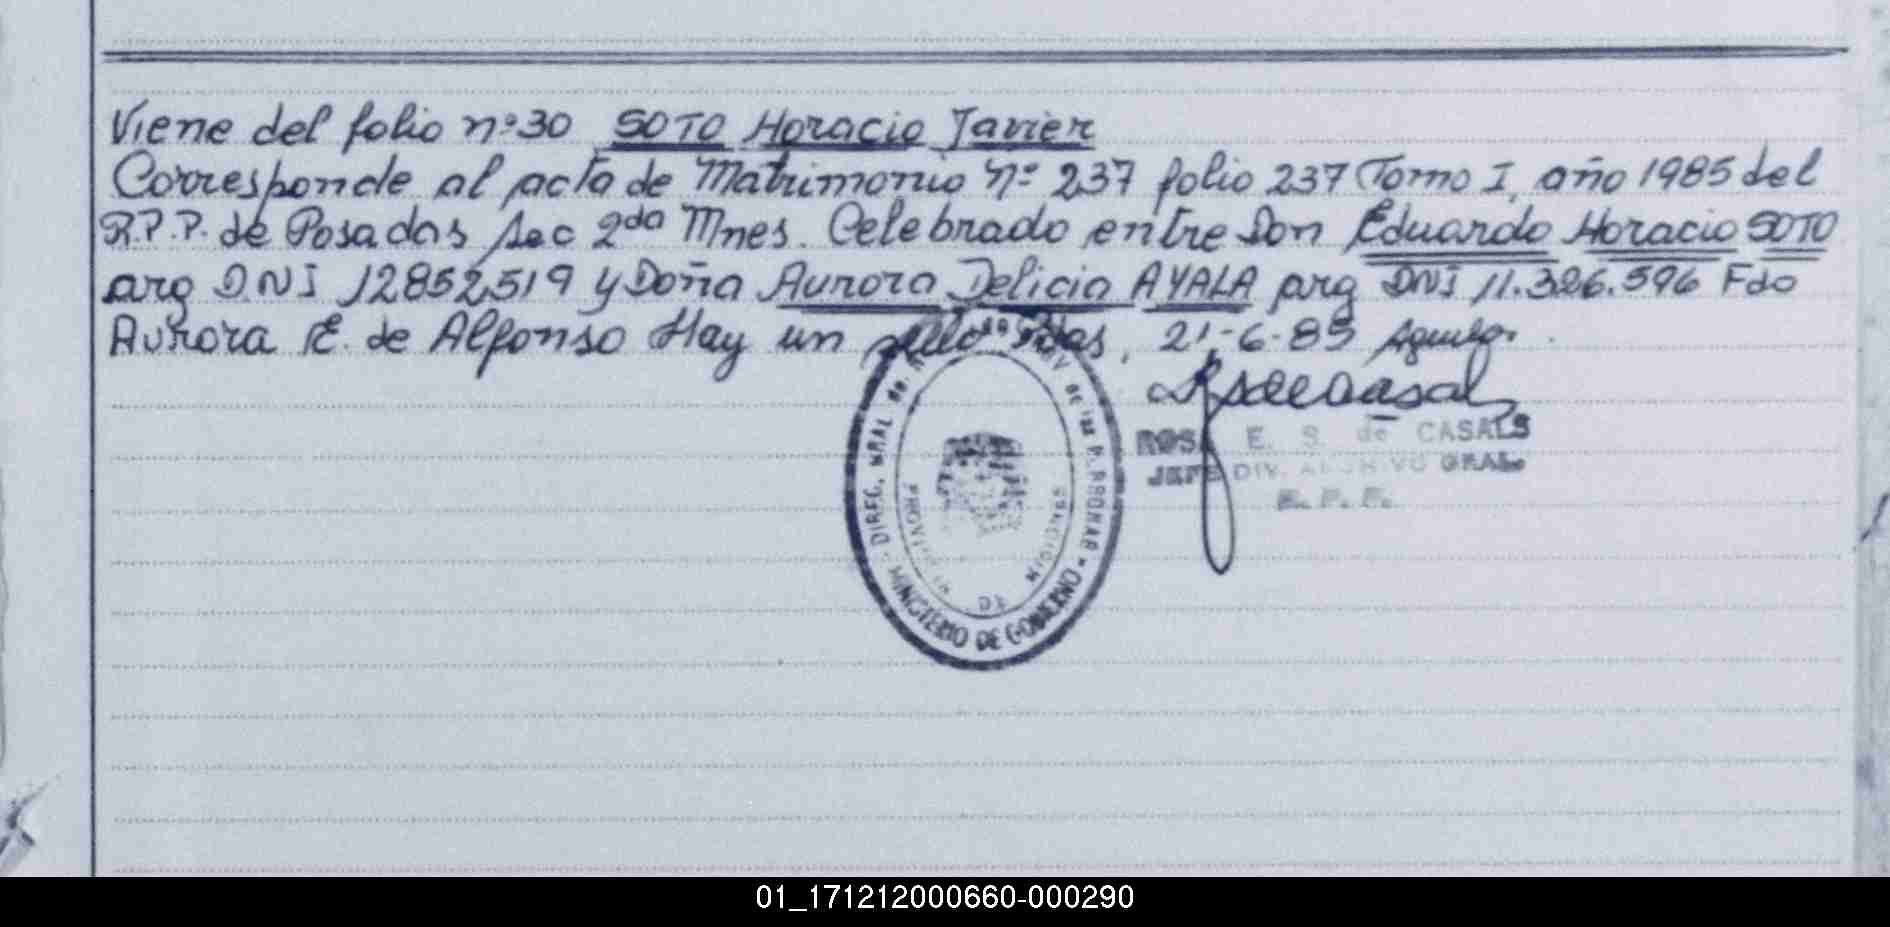 Viene del folio nº 30 SOTO Horacio Javier
Corresponde al acta de Matrimonio Nº 237 folio 237 Tomo I, año 1985 del
R.P.P. de Posadas Sec 2da Mnes. Celebrado entre Don Eduardo Horacio SOTO
arg D.N.I 12852519 y Doña Aurora Delicia AYALA arg DNI 11.326.596 Fdo
Aurora E. de Alfonso Hay un sello Pdas, 21-6-85
ROSA E. S. de CASALS
JEFE DIV. ARCHIVO GRAL.
R. P. P.
DIREC. GRAL de las PERSONAS
MINISTERIO DE GOBIERNO
PROVINCIA DE MISIONES
01_171212000660-000290